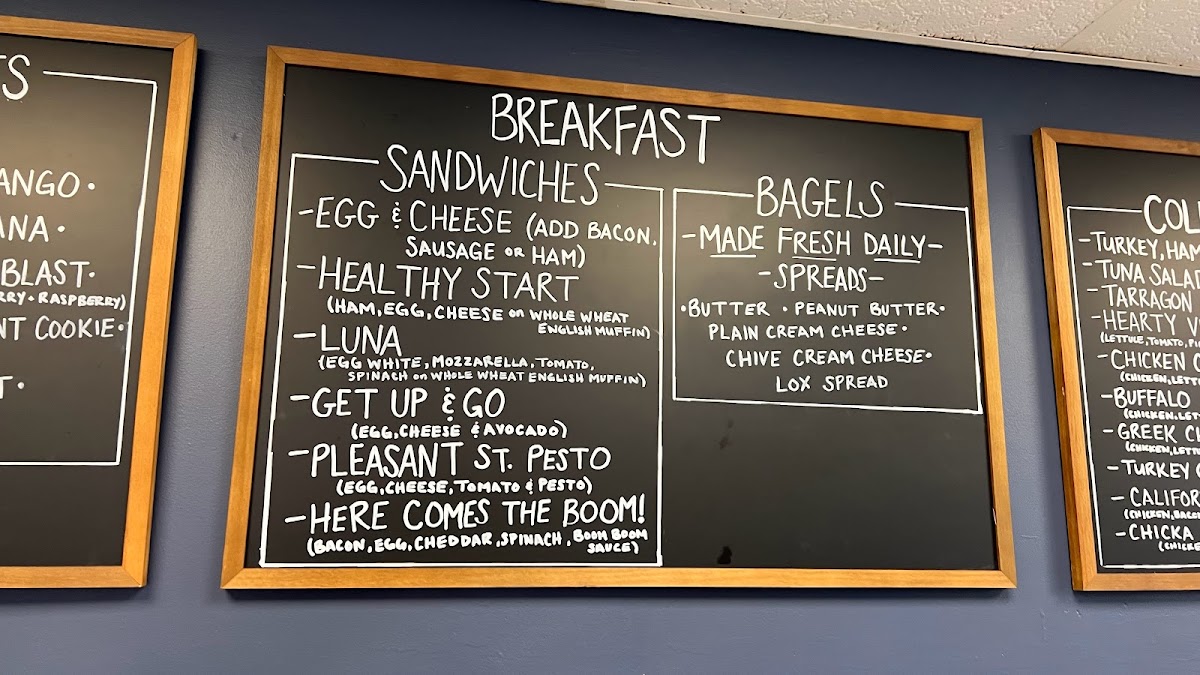 BREAKFAST
SANDWICHES
-EGG & CHEESE (ADD BACON,
SAUSAGE OR HAM)
-HEALTHY START
(HAM, EGG, CHEESE on WHOLE WHEAT
ENGLISH MUFFIN)
-LUNA
(EGG WHITE, MOZZARELLA, TOMATO,
SPINACH on WHOLE WHEAT ENGLISH MUFFIN)
-GET UP & GO
(EGG, CHEESE & AVOCADO)
-PLEASANT ST. PESTO
(EGG, CHEESE, TOMATO & PESTO)
-HERE COMES THE BOOM!
(BACON, EGG, CHEDDAR, SPINACH, BOOM BOOM
SAUCE)
BAGELS
-MADE FRESH DAILY-
-SPREADS-
•BUTTER • PEANUT BUTTER•
PLAIN CREAM CHEESE•
CHIVE CREAM CHEESE•
LOX SPREAD
BLAST•
RASPBERRY)
COOKIE•
-TURKEY, HAM
-TUNA SALAD
-TARRAGON
-HEARTY
(LETTUCE, TOMATO,
-CHICKEN
(CHICKEN,
-BUFFALO
(CHICKEN,
-GREEK
(CHICKEN,
-TURKEY
(CHICKEN,
-CHICKA